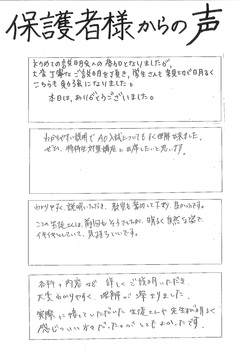 保護者様からの声
初めての説明会の参加となりましたが、
大変丁寧なご説明を頂き、学生さんも親切で明るく
こちらも良い気分になりました。
本日は、ありがとうございました。
わかりやすい説明でAO入試についてもよく理解出来ました。
ぜひ、特待生対策講座に出席したいと思います。
わかりやすく説明いただき、
この学生さんは、前回もそうでしたが、明るく自然な姿で、
イキイキとしていて、気持ちいいです。
各科の内容など詳しくご説明いただき、
大変わかりやすく、理解が深まりました。
実際に通っていらっしゃる生徒さんや先生が明るく
感じのいい方々だったのがとてもよかったです。